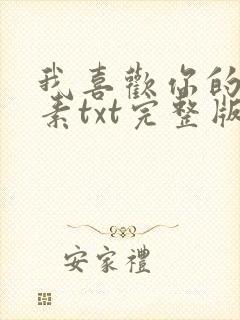 我喜歡你的
素txt完整版
安家禮